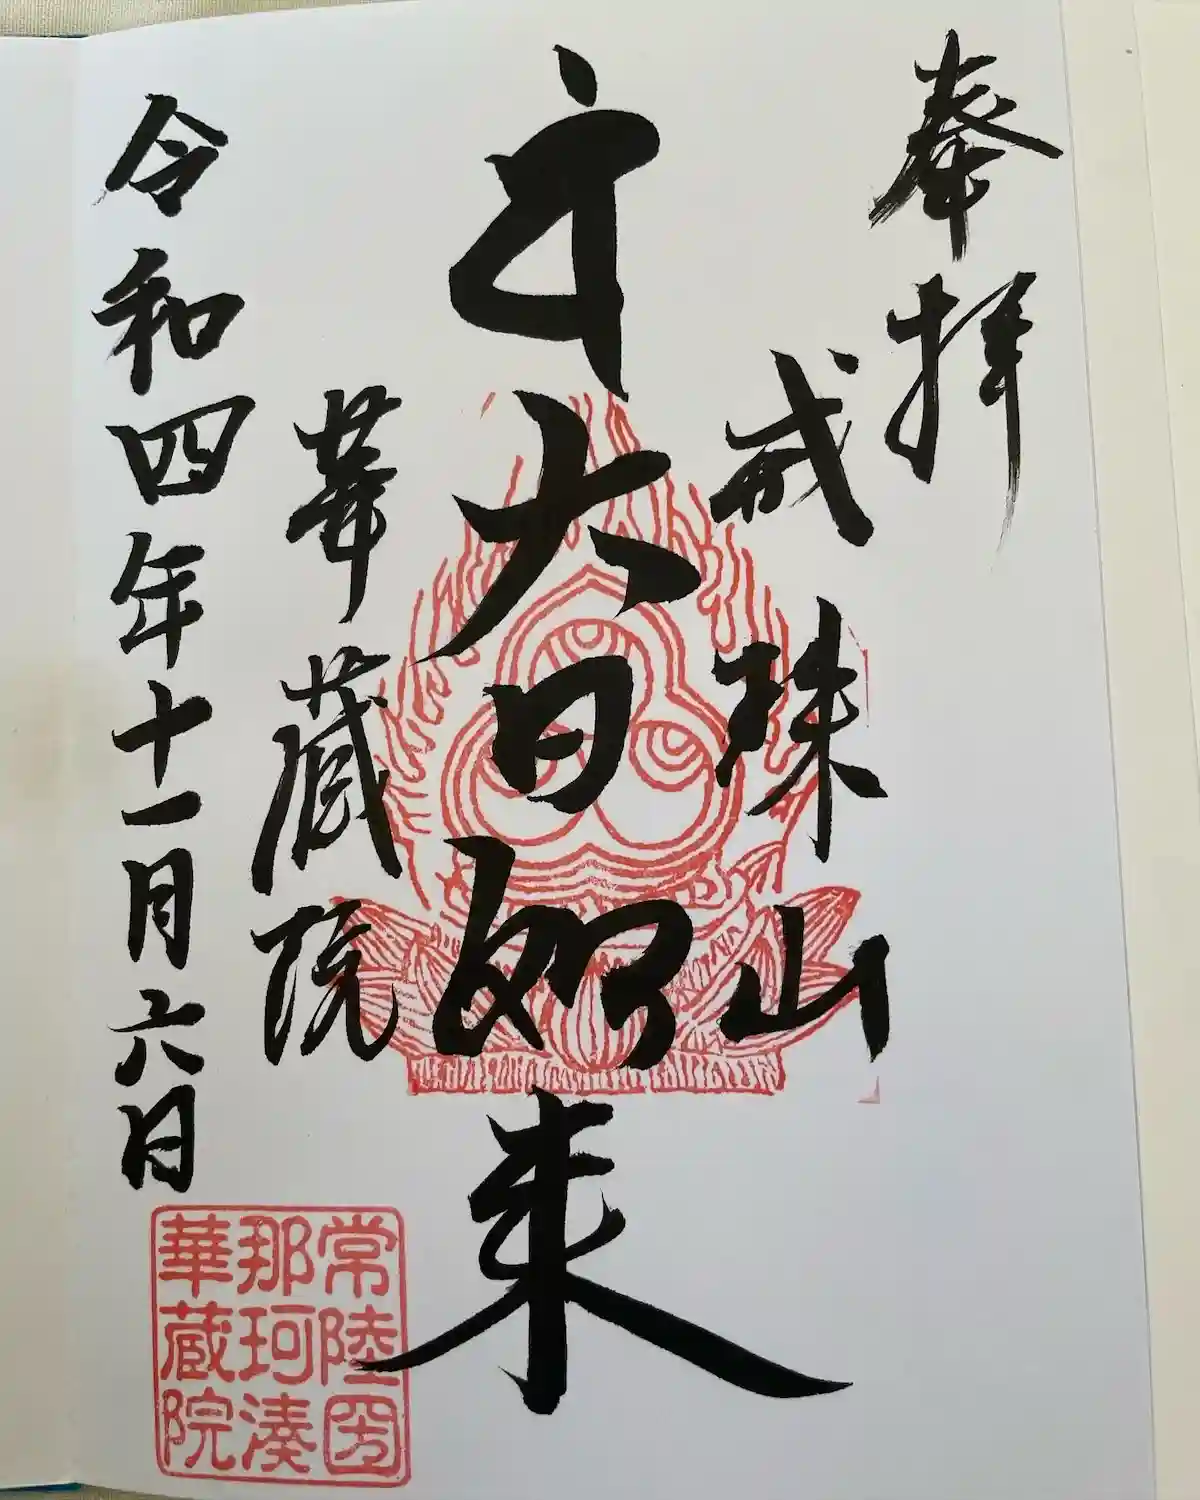 奉拝
戒珠山
大日如来
華蔵院
令和四年十一月六日
常陸国
那珂湊
華蔵院